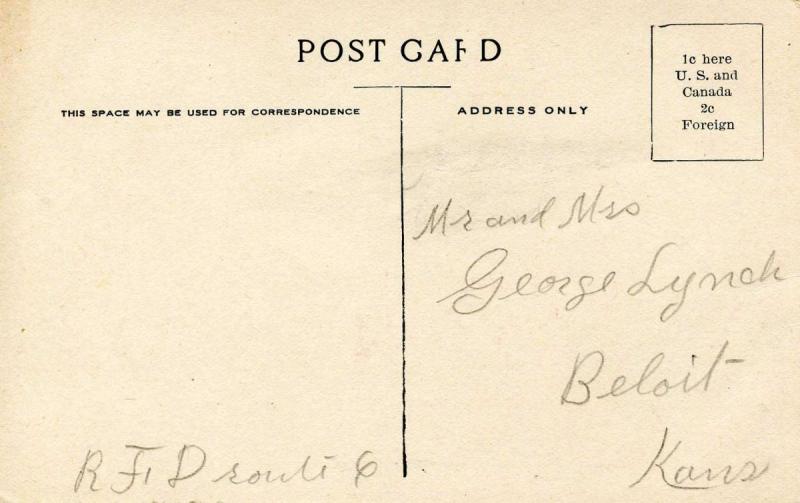 POST CARD
THIS SPACE MAY BE USED FOR CORRESPONDENCE
ADDRESS ONLY
1c here
U. S. and
Canada
2c
Foreign
Mr and Mrs
George Lynch
Beloit
Kans
R F D route 6